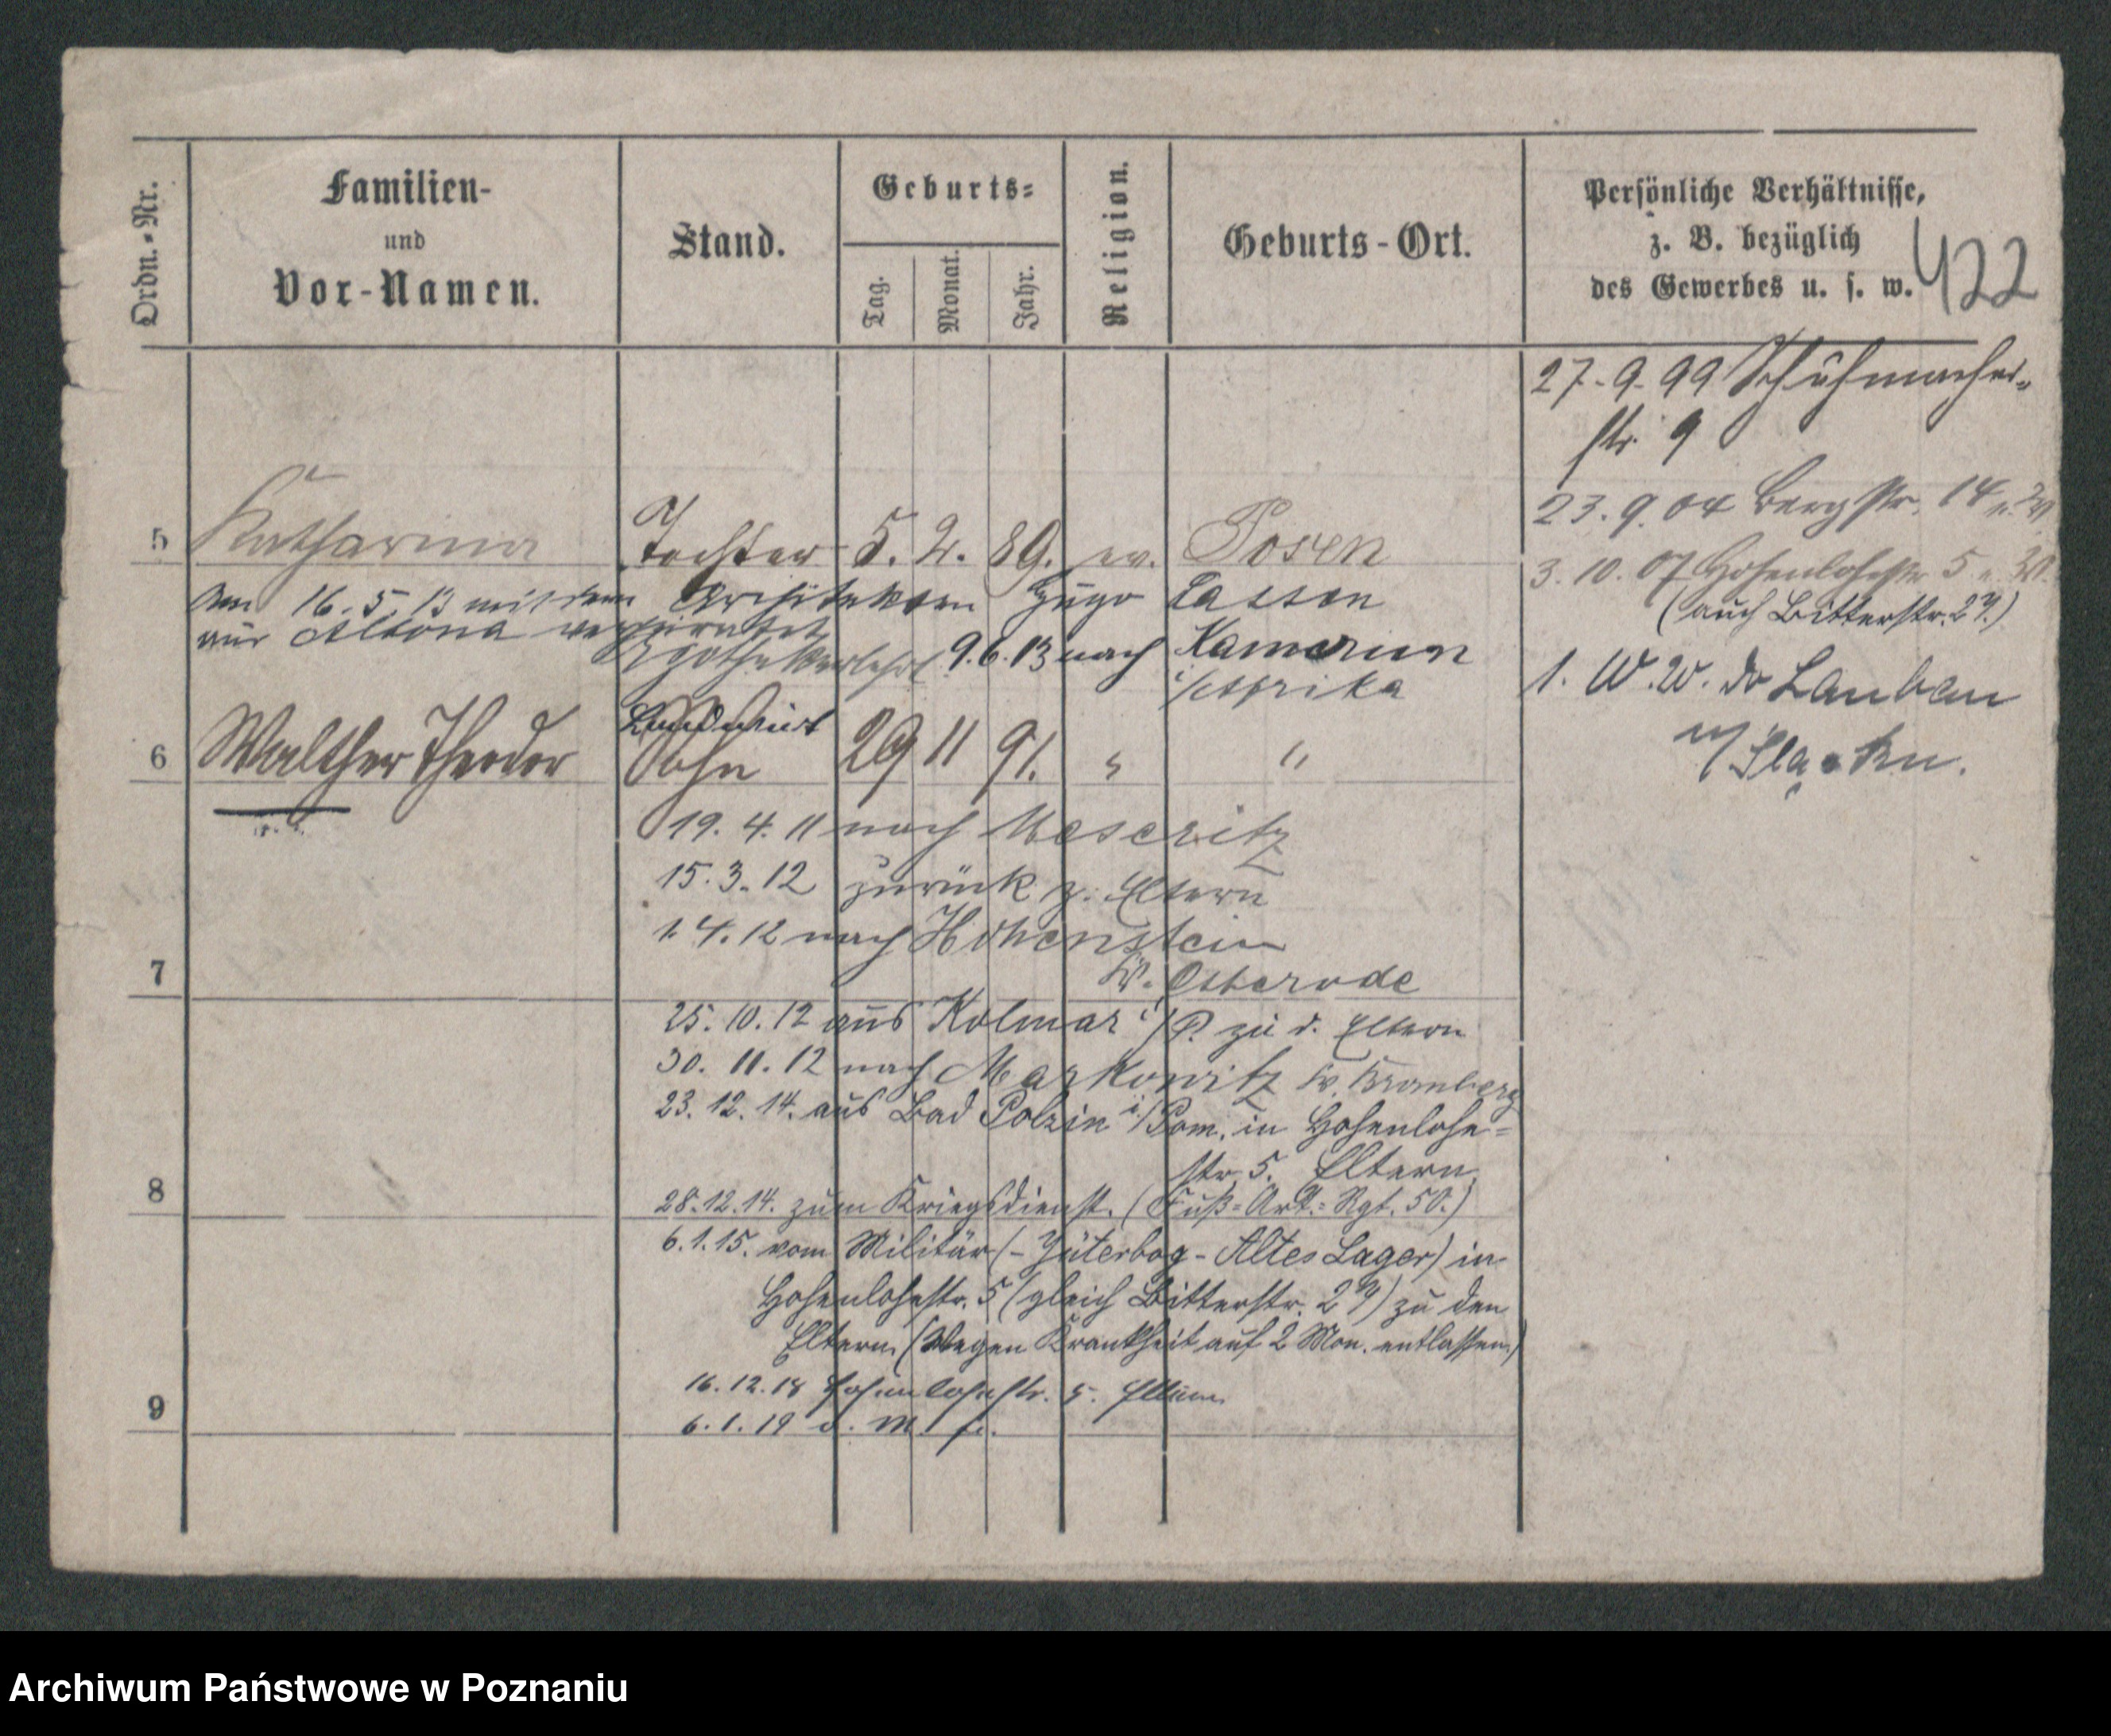 Ordn.-Nr.
Familien-
und
Vor-Namen.
Stand.
Geburts-
Tag.
Monat.
Jahr.
Religion.
Geburts-Ort.
Persönliche Verhältnisse,
z. B. bezüglich
des Gewerbes u. s. w.
422
27.9.99 Schuhmacher-
str. 9
23.9.04 Bergstr. 14
3.10.07 Hohenlohestr 5
(auch Bitterstr. 27.)
1. Lauban
5 Katharina Tochter 5. 2. 89. ev. Posen
am 16.5.13 mit dem Architekten Hugo Lassen
aus Altona verheiratet
9.6.13 nach Kamerun
i/Afrika
Apothekerlehrl.
Landwirt
6 Walther Theodor Sohn 29 11 91. " "
19. 4. 11 nach Meseritz
15. 3. 12 zurück z. Eltern
1. 4. 12 nach Hohenstein
Kr. Osterode
7
25. 10. 12 aus Kolmar i/P. zu d. Eltern
30. 11. 12 nach Markowitz Kr. Bromberg
23. 12. 14. aus Bad Polzin i/Pom. in Hohenlohe-
str. 5. Eltern
8
28.12.14. zum Kriegsdienst. (Fuß-Art.-Rgt. 50.)
6.1.15. vom Militär (- Jüterbog - Altes Lager) in
Hohenlohestr. 5 (gleich Bitterstr. 27) zu den
Eltern. (Wegen Krankheit auf 2 Mon. entlassen.)
16.12.18 Hohenlohestr. 5. Eltern
9
6.1.19
Archiwum Państwowe w Poznaniu